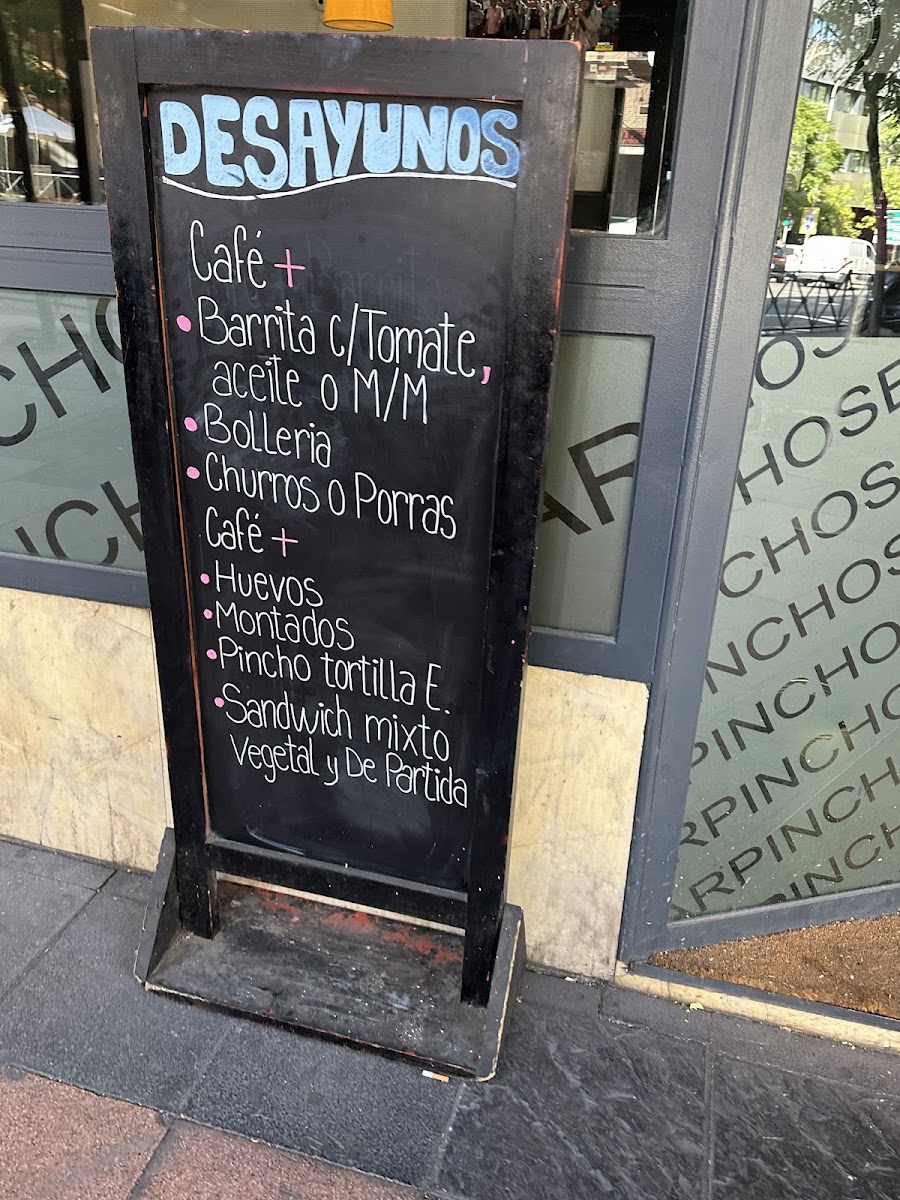 DESAYUNOS
Café +
• Barrita c/Tomate,
aceite o M/M
• Bolleria
• Churros o Porras
Café +
• Huevos
• Montados
• Pincho tortilla E.
• Sandwich mixto
Vegetal y De Partida
CHO
NCH
AR
IOS
HOSE
CHOS
NCHOS
PINCHO
RPINCHO
ARPINCH
PINCH